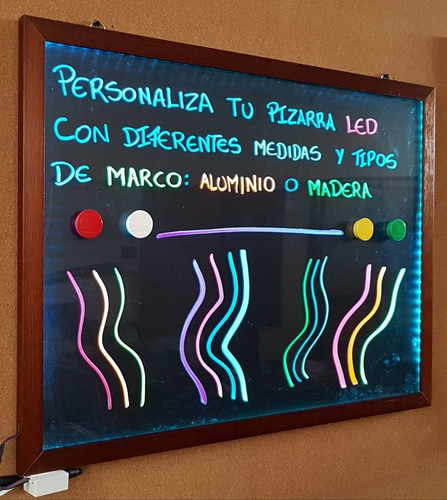 PERSONALIZA TU PIZARRA LED
CON DIFERENTES MEDIDAS Y TIPOS
DE MARCO: ALUMINIO O MADERA